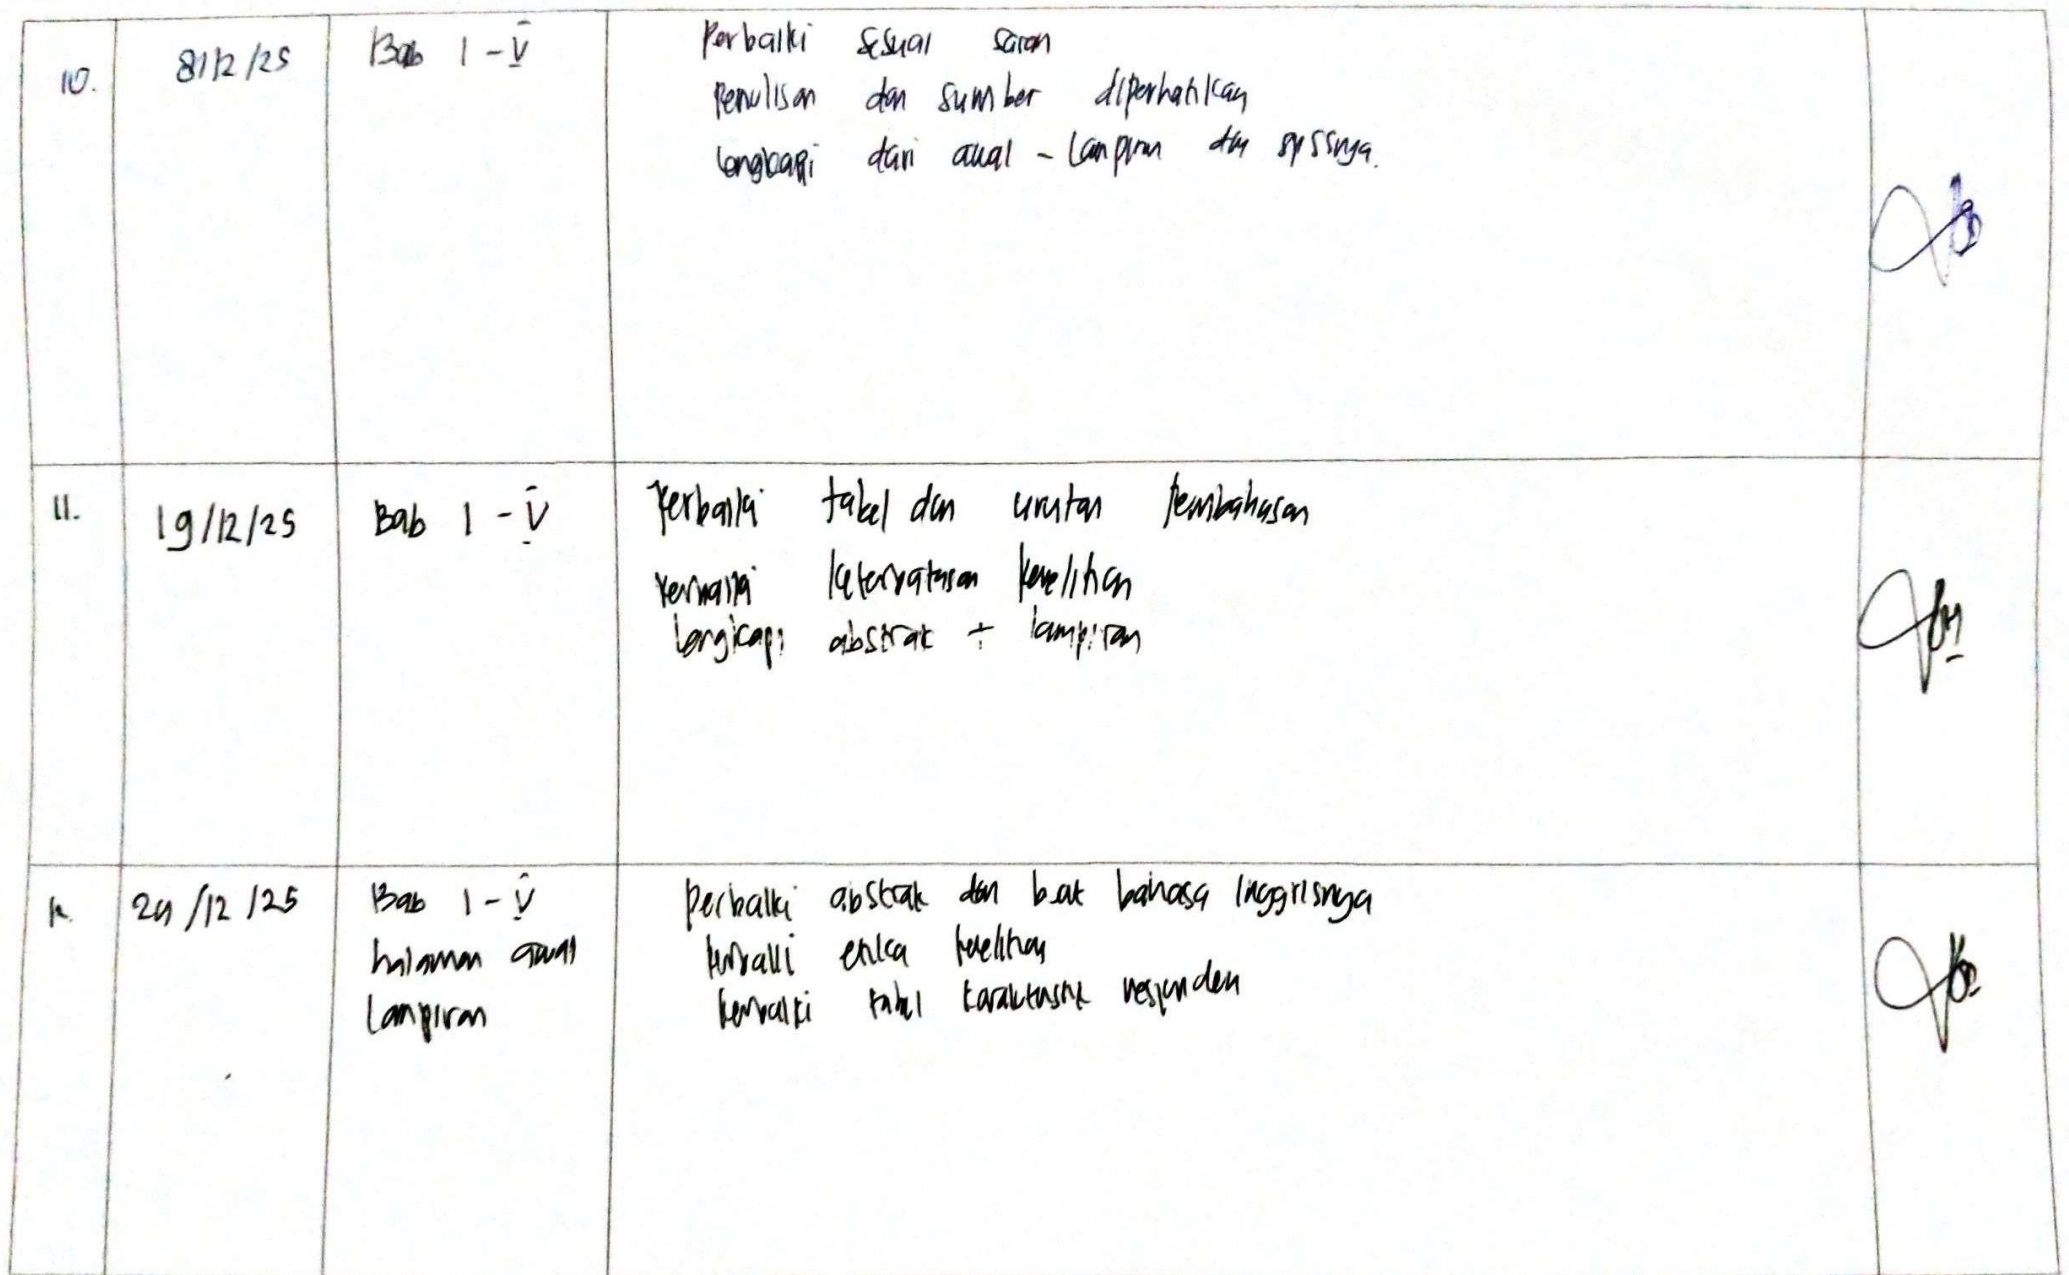 10. 8/12/25 Bab I - V Perbaiki sesuai saran
Penulisan dan sumber diperhatikan
Lengkapi dari awal - Lampiran dan spssnya.
11. 19/12/25 Bab I - V Perbaiki tabel dan urutan pembahasan
Perbaiki keterbatasan penelitian
Lengkapi abstrak + lampiran
12. 24/12/25 Bab I - V Perbaiki abstrak dan buat bahasa Inggrisnya
halaman awal Perbaiki etika penelitian
Lampiran Perbaiki tabel karakteristik responden